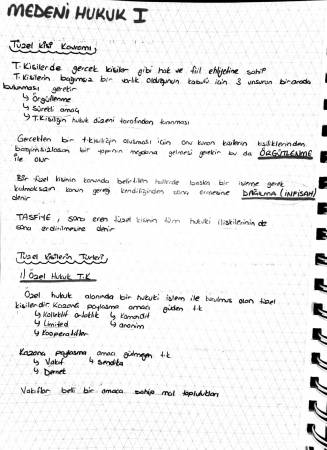 MEDENİ HUKUK I
Tüzel Kişi Kavramı;
T. Kişilerde gerçek kişiler gibi hak ve fiil ehliyetine sahip
T. Kişilerin bağımsız bir varlık olduğunun kabulü için 3 unsurun bir arada
bulunması gerekir
↳ Örgütlenme
↳ Sürekli amaç
↳ T. Kişiliğin hukuk düzeni tarafından tanınması
Gerçekten bir t. kişiliğin oluşması için onu kuran kişilerin kişiliklerinden
bağımsızlaşan bir yapının meydana gelmesi gerekir bu da ÖRGÜTLENME
ile olur
Bir tüzel kişinin kanunda belirtilen hallerde başka bir işleme gerek
kalmaksızın kanun gereği kendiliğinden sona ermesine DAĞILMA (İNFİSAH)
denir
TASFİYE ; sona eren tüzel kişinin tüm hukuki ilişkilerinin de
sona erdirilmesine denir
Tüzel Kişilerin Türleri;
1) Özel Hukuk T.K
Özel hukuk alanında bir hukuki işlem ile kurulmuş olan tüzel
kişilerdir. Kazanç paylaşma amacı güden t.k
↳ Kollektif ortaklık ↳ Komandit
↳ Limited ↳ anonim
↳ Kooperatifler
Kazanç paylaşma amacı gütmeyen t.k
↳ Vakıf ↳ Sendika
↳ Dernek
Vakıflar belli bir amaca sahip mal toplulukları